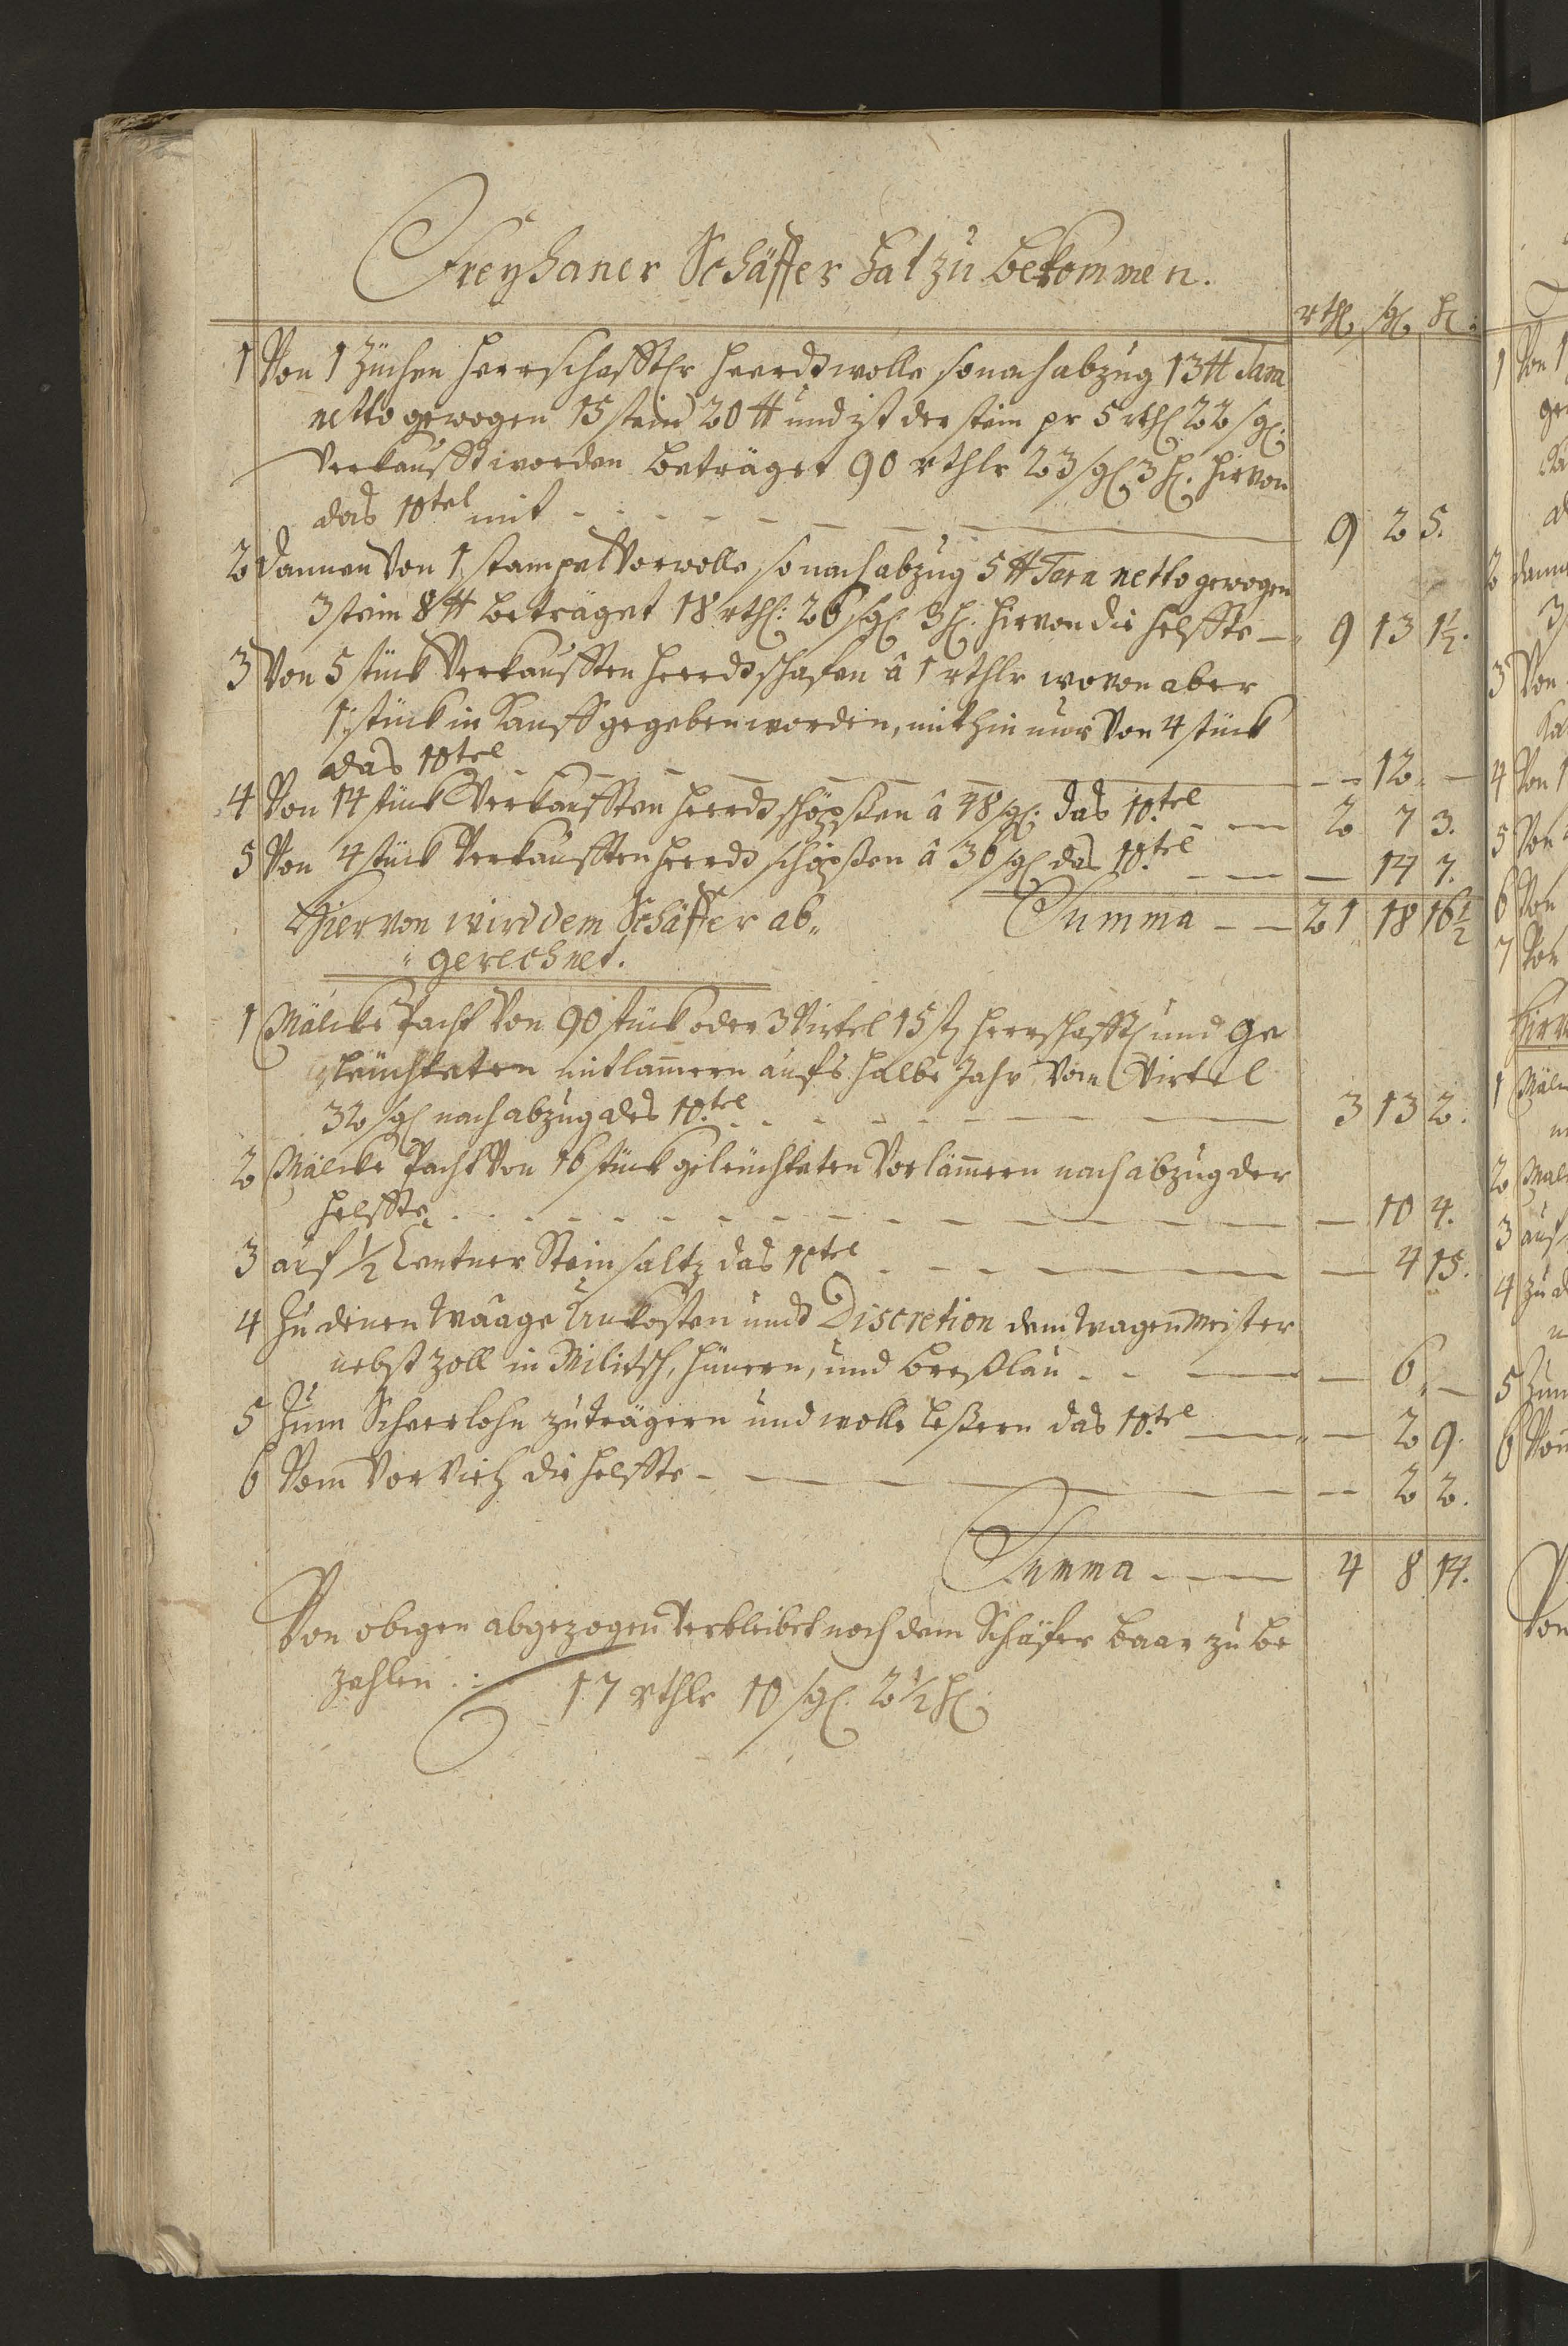 Freyhaner Schäffer hat zu bekommen.
rthl. sgl. hl:
1 Von 1 Züchen herrschafftlr heerdtwolle so nach abzug 13 ℔ Tara
netto gewogen 15 stein 20 ℔ und ist der stein pr 5 rthl 22 sgl.
verkaufft worden beträget 90 rthlr 23 sgl 3 hl. hirvon
das 10tel mit - - - 9 2 5.
2 dannen Von 1 stampel Vorwolle, so nach abzug 5 ℔ Tara netto gewogen
3 stein 8 ℔ beträget 18 rthl: 26 sgl 3 hl. hirvon die helffte — 9 13 1½.
3 Von 5 stück Verkaufften heerdt schafen â 1 rthlr wovon aber
1 stück in Kauff gegeben worden, mithin nur Von 4 stück
das 10tel - - - 12 —
4 Von 14 stück Verkaufften heerdt schöpßen â 48 sgl: das 10.tel - — 2 7 3.
5 Von 4 stück Verkaufften heerdt schöpßen â 36 sgl das 10.tel - — — 14 7.
Summa - — 21 18 16½
Hiervon wird dem Schäffer ab„
„gerechnet.
1 Mälcke Pacht Von 90 stück oder 3 Virtel 15 st herrschafftl und Ge
leüchteten mitlam̄ern aufs halbe Jahr, vom Virtel
32 sgl nach abzug des 10.tel - - - 3 13 2.
2 Mälcke Pacht Von 16 stück geleüchteten Vorläm̄ern nach abzug der
helffte - - - — 10 4.
3 auf ½ Centner Steinsaltz das 10tel - - - — 4 15.
4 Zu denen Waage Unkosten und Discretion dem wagenmeister
nebst Zoll in Militsch, hünern, und Breßlau - - — — 6 —
5 Zum Scheerlohn zuträgern und wolle leßern das 10.tel — — 2 9.
6 Vom Vor Vieh die helffte - — — 2 2.
Summa - — 4 8 14.
Von obigen abgezogen Verbleibet noch dem Schäfer baar zu be
zahlen : 17 rthlr 10 sgl. 2½ hl.